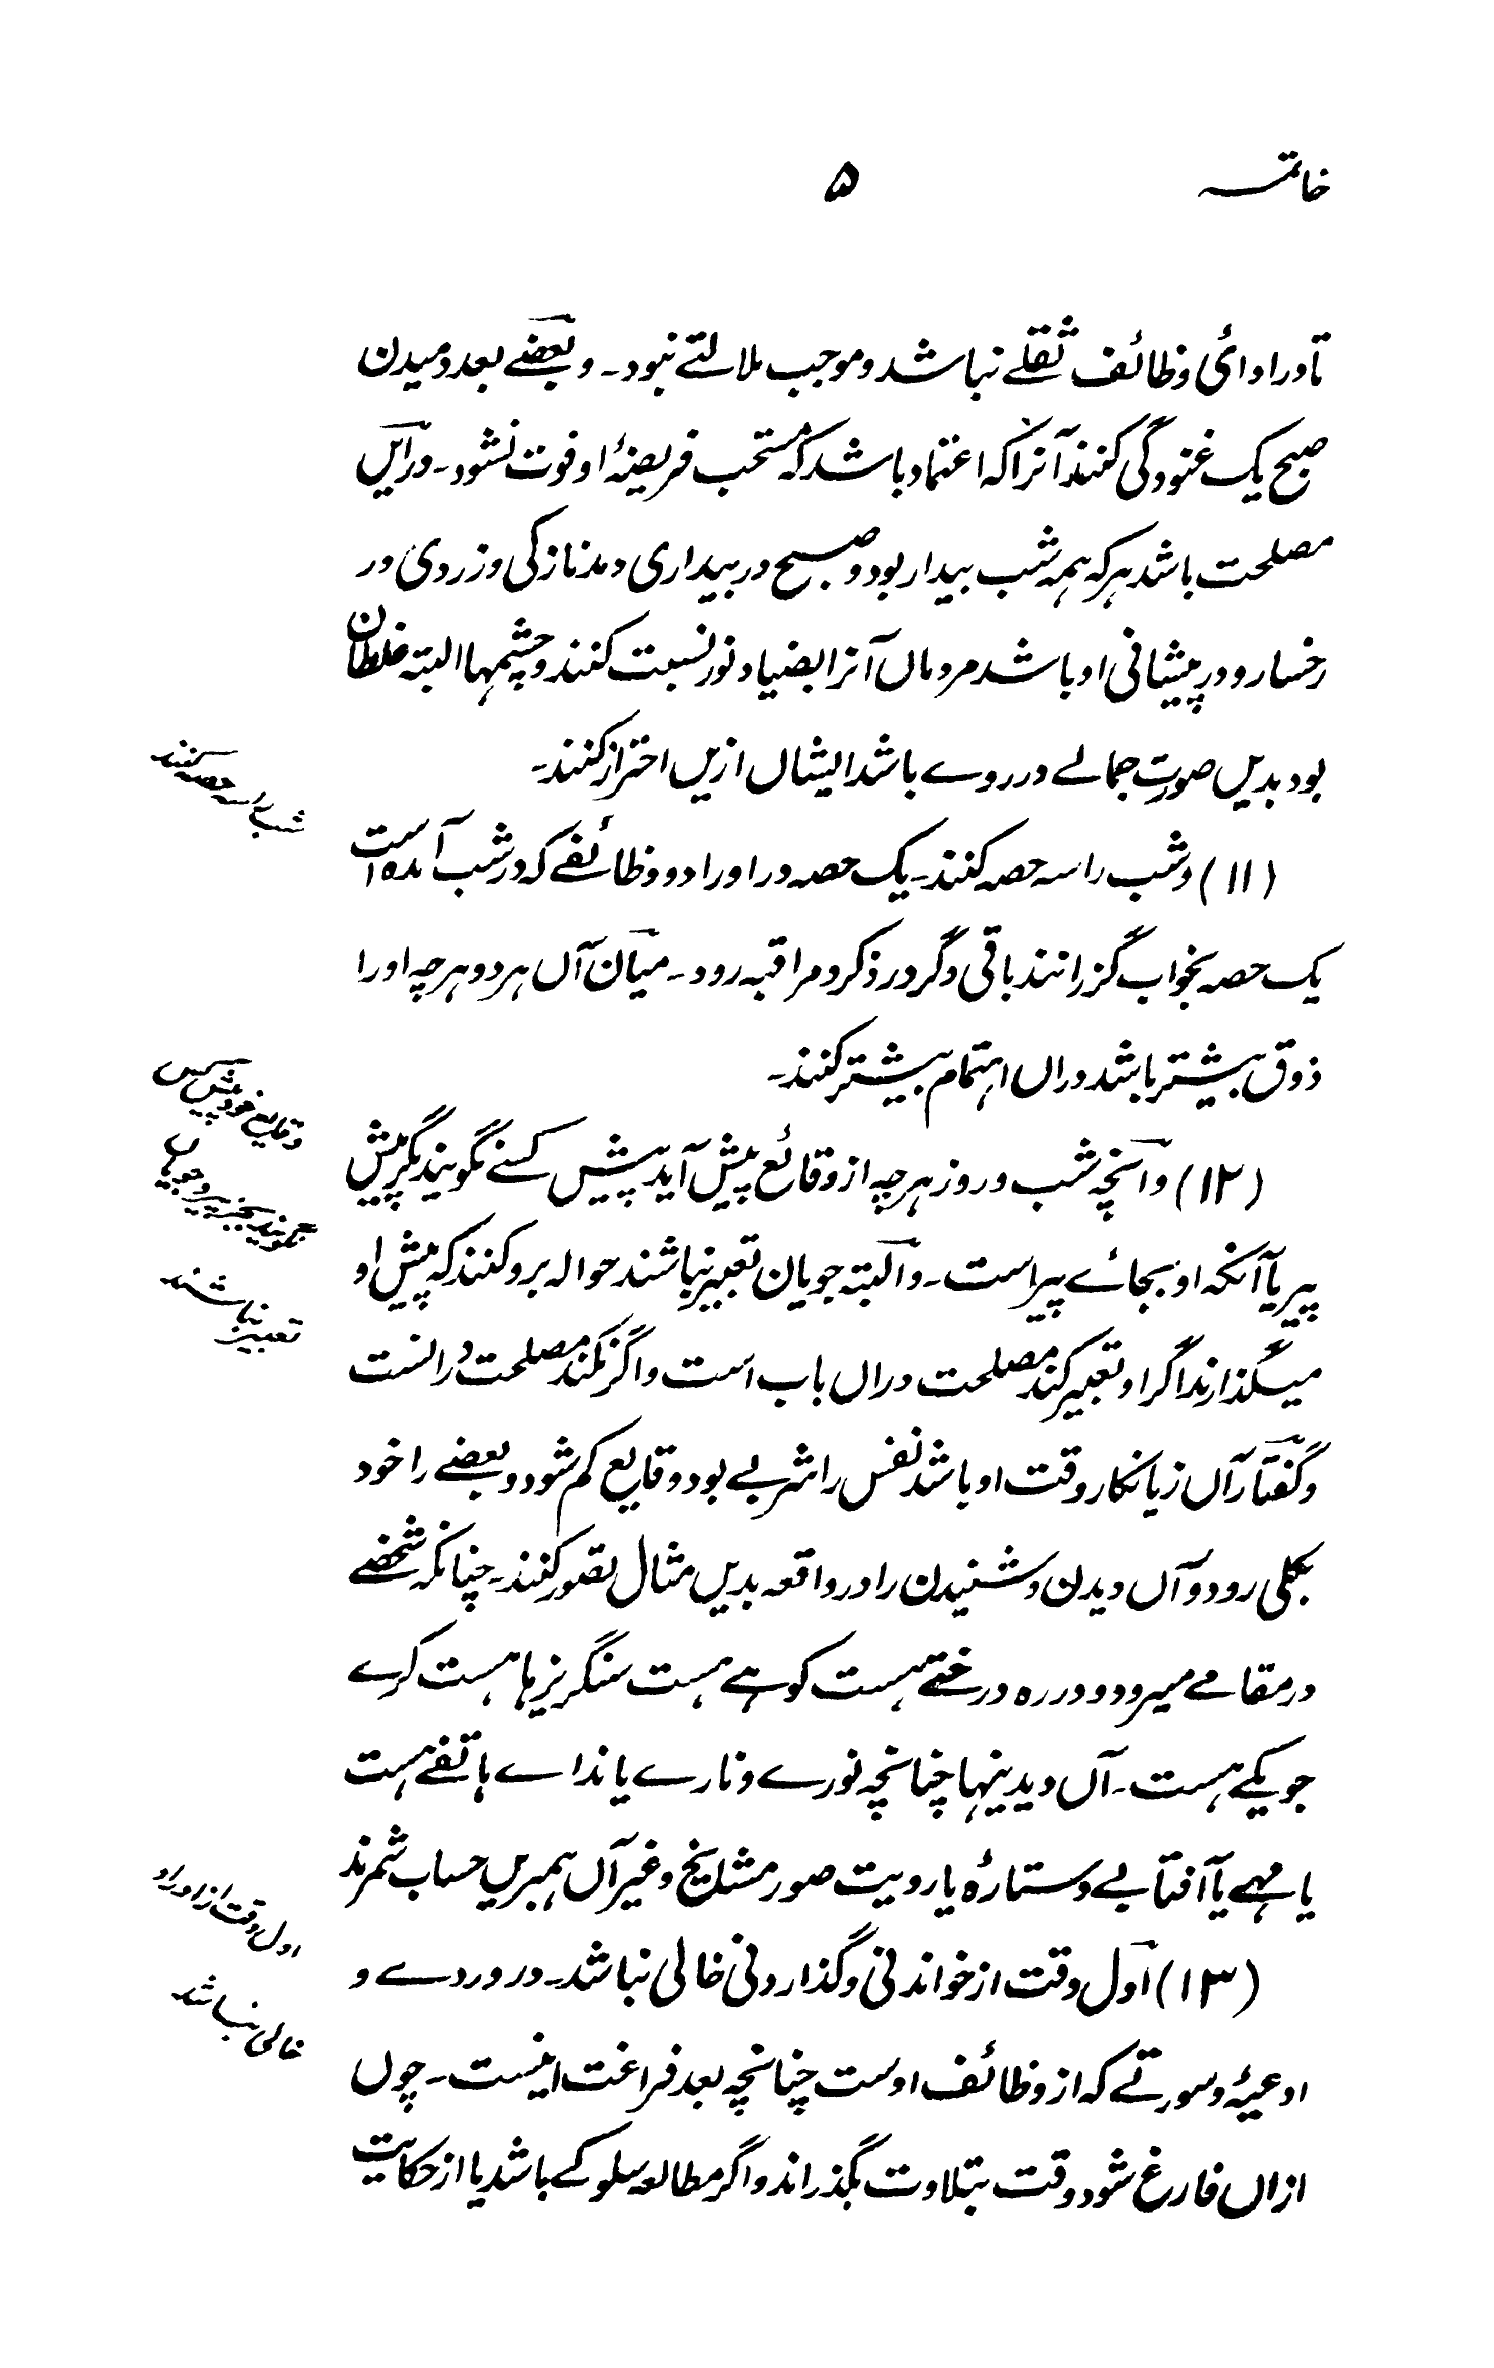 خاتمہ ۵
تا در ادائ وظائف ثقلے نباشد و موجب ملالتے نبود۔ و بعضے بعد دمیدن
صبح یک غنودگی کنند آنرا کہ اعتماد باشد کہ مستحب فریضۂ او فوت نشود۔ دراین
مصلحت باشد ہرکہ ہمہ شب بیدار بود و صبح در بیداری دمد نازکی و زردی در
رخسار و در پیشانی او باشد مردماں آنرا بضیا و نور نسبت کنند و چشمہا البتہ غلطان
بود بدیں صورت جمالے در روے باشد ایشاں ازیں احتراز کنند۔
شب را سہ حصہ کنند
(۱۱) و شب را سہ حصہ کنند۔ یک حصہ در اوراد و وظائفے کہ در شب آمدہ است
یک حصہ بخواب گزرانند باقی دگر در ذکر و مراقبہ رود۔ میان آں ہر دو ہرچہ او را
ذوق بیشتر باشد دراں اہتمام بیشتر کنند۔
وقایع خود پیش کس
نگویند بجز پیر و جویاں
تعبیر نباشند
(۱۲) و آنچہ شب و روز ہرچہ از وقائع پیش آید پیش کسے نگویند مگر پیش
پیر یا آنکہ او بجائے پیر است۔ و البتہ جویان تعبیر نباشند حوالہ برو کنند کہ پیش او
میگذارند اگر او تعبیر کند مصلحت دراں باب است و اگر نکند مصلحت درانست
و گفتار آں زیانکار وقت او باشد نفس را شربے بود وقایع کم شود و بعضے را خود
بکلی رود و آں دیدن و شنیدن را در واقعہ بدیں مثال تصور کنند۔ چنانکہ شخصے
در مقامے میرود و در رہ درختے ہست کوہے ہست سنگریزہا ہست کرے
جویکے ہست۔ آں دید ینہا چنانچہ نورے و نارے یا نداے ہاتفے ہست
یا مہے یا آفتابے و ستارۂ یا رویت صور مشایخ و غیر آں ہمبریں حساب شمرند
اول وقت از اوراد
خالی نباشد
(۱۳) اول وقت از خواندنی و گذاردنی خالی نباشد۔ در وردے و
ادعیۂ و سورتے کہ از وظائف اوست چنانچہ بعد فراغت انیست۔ چوں
ازاں فارغ شود وقت بتلاوت بگذراند و اگر مطالعہ سلوکے باشد یا از حکایت